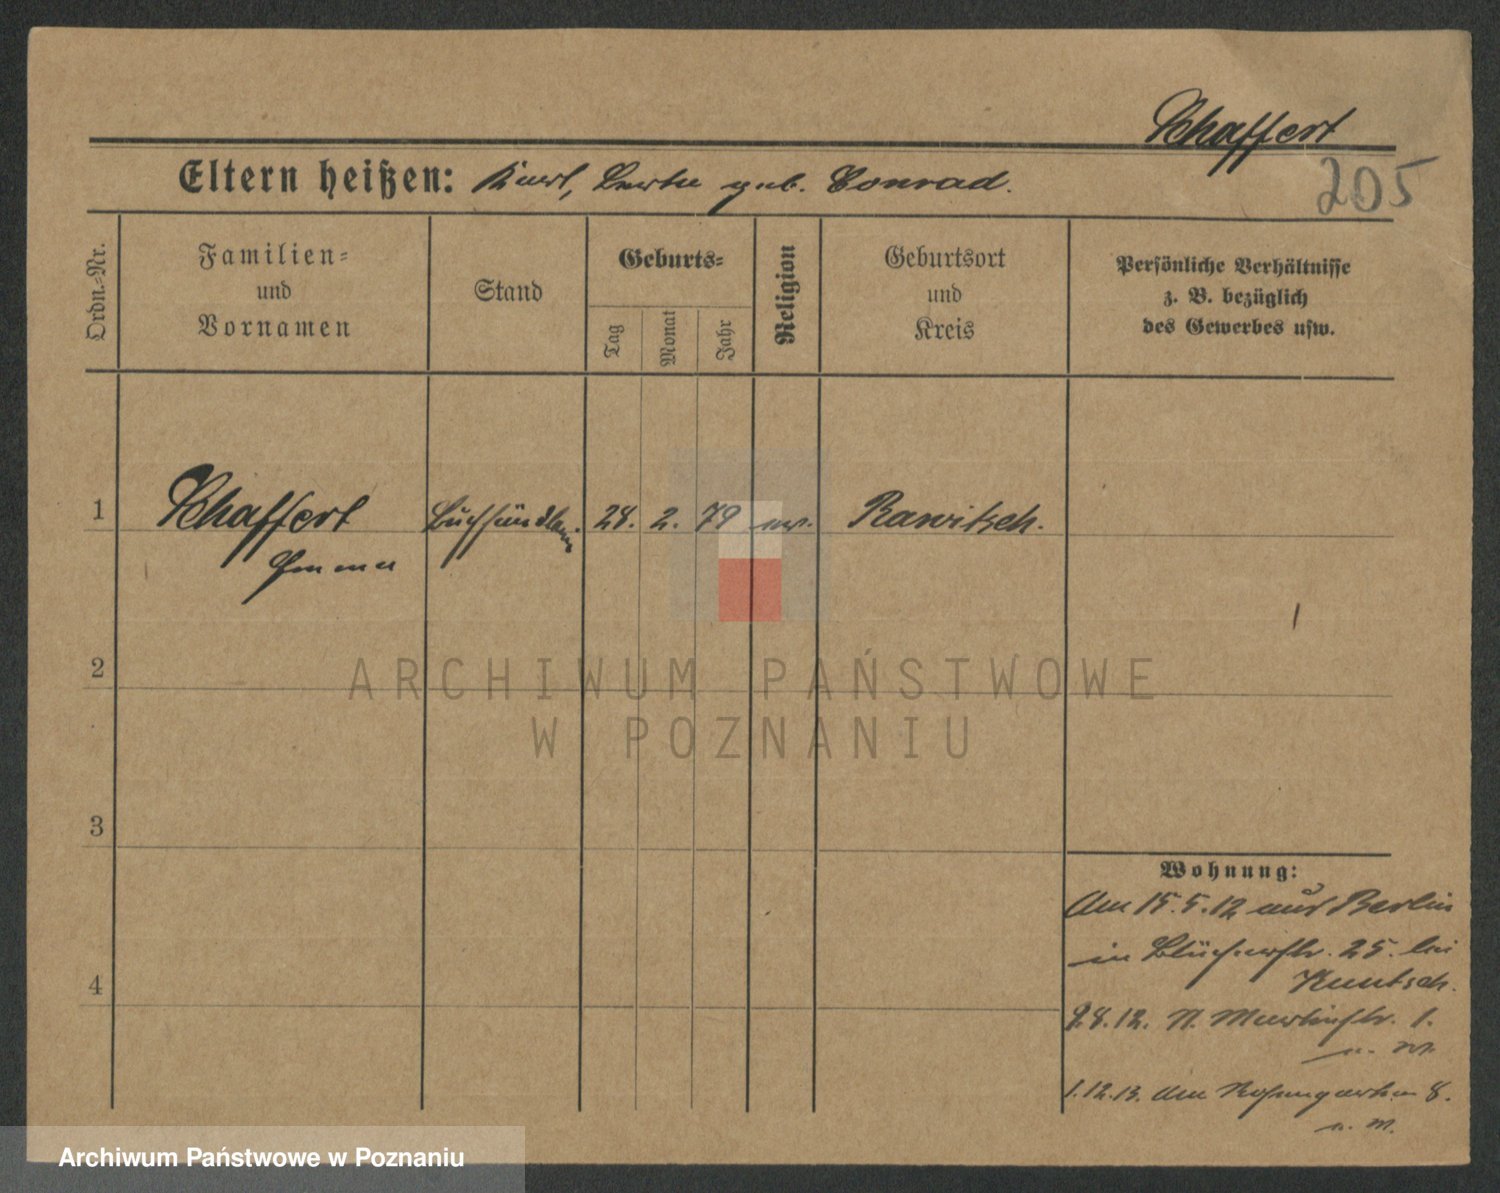 Schaffert
205
Eltern heißen: Karl, Bertha geb. Conrad.
Ordn.=Nr.
Familien=
und
Vornamen
Stand
Geburts=
Tag
Monat
Jahr
Religion
Geburtsort
und
Kreis
Persönliche Verhältnisse
z. B. bezüglich
des Gewerbes usw.
1 Schaffert 28. 2. 79 ev. Rawitsch.
Emma
2
3
4
Wohnung:
Am 15.5.12 aus Berlin
in Blücherstr. 25. bei
Kuntsch.
St. Martinstr. 1.
1.12.13. Am Rosengarten 8.
ARCHIWUM PAŃSTWOWE
W POZNANIU
Archiwum Państwowe w Poznaniu